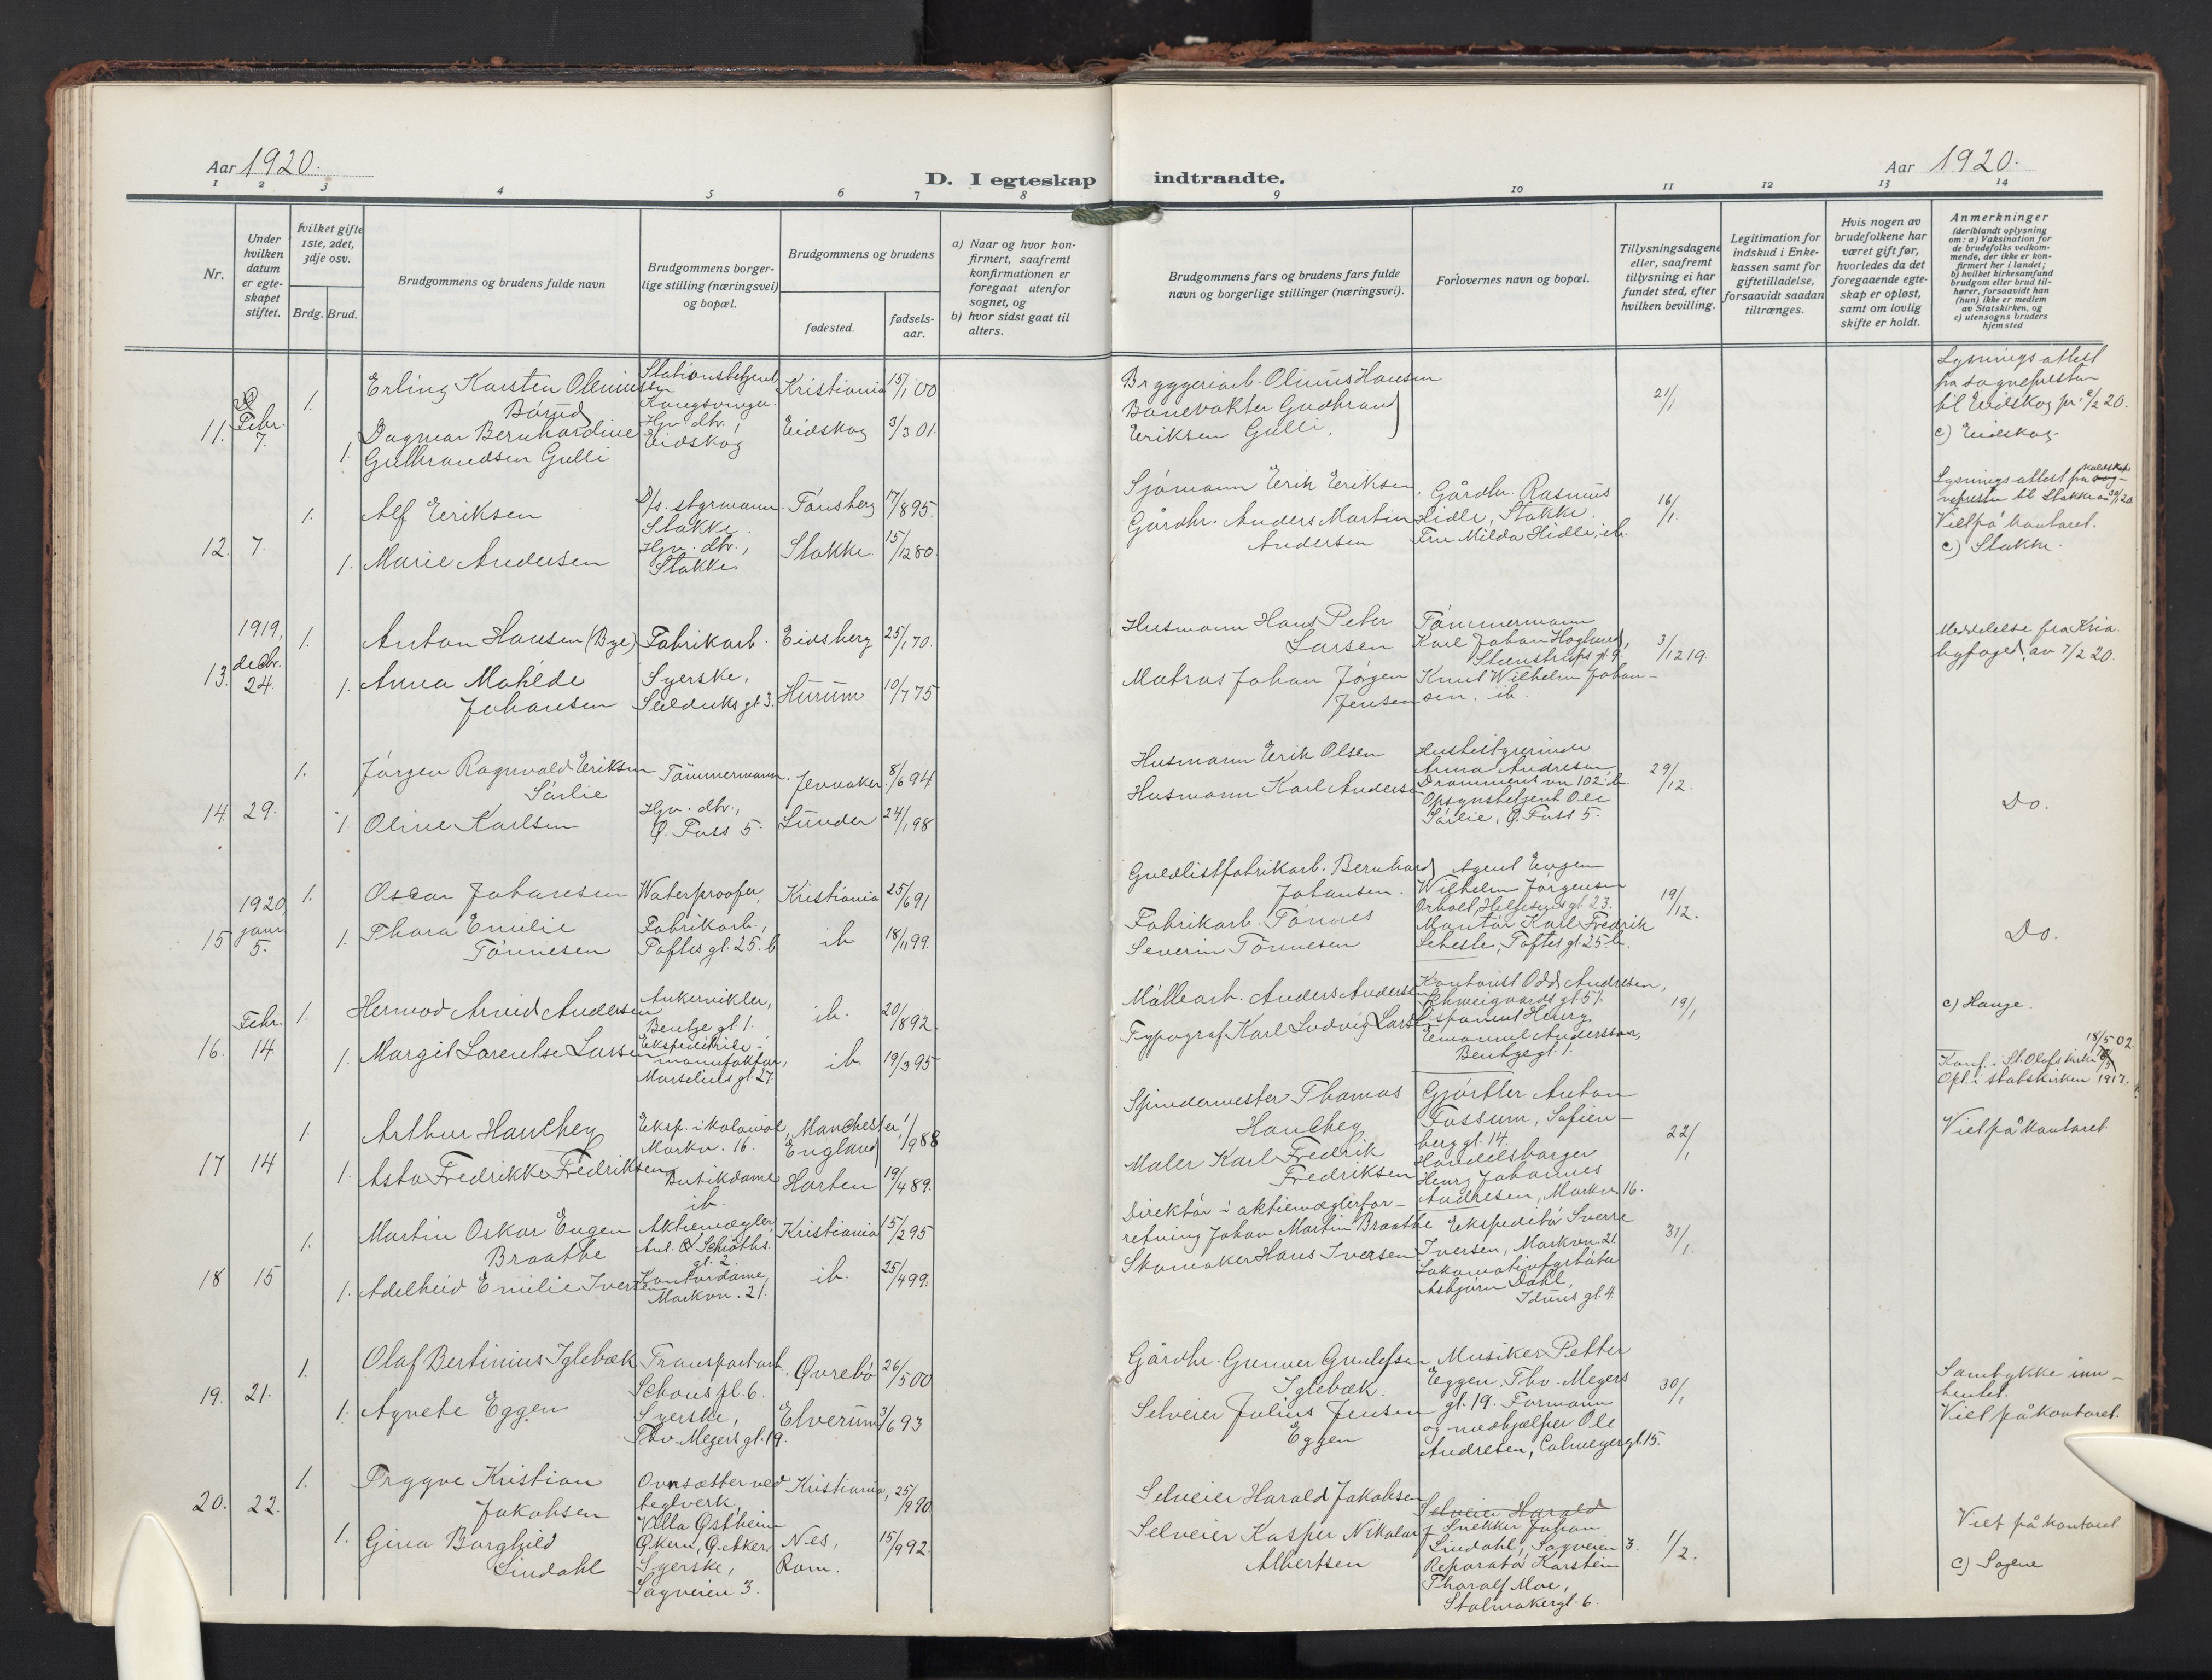 Aar 1920.
D. I egteskap indtraadte.
Aar 1920.
1 2 3 4 5 6 7 8 9 10 11 12 13 14
Nr.
Under hvilken datum er egteskapet stiftet.
hvilket gifte 1ste, 2det, 3dje osv.
Brdg. Brud.
Brudgommens og brudens fulde navn
Brudgommens borgerlige stilling (næringsvei) og bopæl.
Brudgommens og brudens
fødested.
fødselsaar.
a) Naar og hvor konfirmert, saafremt konfirmationen er foregaat utenfor sognet, og
b) hvor sidst gaat til alters.
Brudgommens fars og brudens fars fulde navn og borgerlige stillinger (næringsvei).
Forlovernes navn og bopæl.
Tillysningsdagene eller, saafremt tillysning ei har fundet sted, efter hvilken bevilling.
Legitimation for indskud i Enkekassen samt for giftetilladelse, forsaavidt saadan tiltrænges.
Hvis nogen av brudefolkene har været gift før, hvorledes da det foregaaende egteskap er opløst, samt om lovlig skifte er holdt.
Anmerkninger
(deriblandt oplysning om: a) Vaksination for de brudefolks vedkommende, der ikke er konfirmert her i landet; b) hvilket kirkesamfund brudgom eller brud tilhører, forsaavidt han (hun) ikke er medlem av Statskirken, og c) utensogns bruders hjemsted
11. Febr. 7.
1. Erling Karsten Oleniussen Börud
Stationsbetjent, Kongsvinger
Kristiania 15/1 00
1. Dagmar Bernhardine Gulbrandsen Gulli
Hjv. dtr. Eidskog
Eidskog 3/3 01.
Bryggeriarb. Olinius Hansen
Banevakter Gudbrand Eriksen Gulli.
21/1
Lysningsattest fra sognepresten til Eidskog pr. 2/2 20.
c) Eidskog
12. 7.
1. Alf Eriksen
D/s. styrmann Stokke
Tönsberg 17/8 95.
1. Marie Andersen
Hjv. dtr., Stokke
Stokke. 15/12 80.
Sjömann Erik Eriksen.
Gårdbr. Anders Martin Andersen
Gårdbr. Rasmus Hidle, Stokke.
Fru Milda Hidle, ib.
16/1.
Lysningsattest fra sognepresten til Stokke av 30/1 20
Viet på kontoret.
c) Stokke.
13. 1919, decbr. 24.
1. Anton Hansen (Bye)
Fabrikarb.
Eidsberg 25/1 70.
1. Anna Mathilde Johansen
Syerske, Seilduks gt. 3.
Hurum 10/7 75
Husmann Hans Peter Larsen
Matros Johan Jörgen Jensen
Tömmermann Karl Johan Hoglund, Steenstrups gt. 9.
Knut Wilhelm Johansen, ib.
3/12 19.
Meddelelse fra Kria. byfoged av 7/2 20.
14. 29.
1. Jörgen Ragnvald Eriksen Sörlie
Tömmermann.
Jevnaker 8/6 94
1. Oline Karlsen
Hjv. dtr., Ø. Foss 5.
Lunder 24/1 98
Husmann Erik Olsen
Husmann Karl Andersen
Husbestyrerinde Anna Andresen, Drammensvn 102 b.
Opsynsbetjent Ole Sörlie, Ø. Foss 5.
29/12.
Do.
15 1920, janr. 5.
1. Oscar Johansen
Waterproofer,
Kristiania 25/6 91
1. Thora Emilie Tönnesen
Fabrikarb., Toftes gt. 25. b
ib 18/11 99.
Guldlistfabrikarb. Bernhard Johansen.
Fabrikarb. Tönnes Severin Tönnesen
Agent Eugen Wilhelm Jörgensen Orholt, Helgesens gt. 23.
Montör Karl Fredrik Schesle, Toftes gt. 25 b.
19/12.
Do.
16. Febr. 14.
1. Hermod Arvid Andersen
Ankervikler, Bentse gt. 1.
ib. 20/8 92.
1. Margit Lorentse Larsen
Ekspeditrice manufaktur, Marselius gt. 27.
ib. 19/3 95
Möllearb. Anders Andersen
Typograf Karl Ludvig Larsen
Kontorist Odd Andresen, Schweigaards gt. 51.
Disponent Henry Emanuel Andersson, Bentse gt. 1.
19/1
c) Hauge.
18/5 02.
Konf. i St. Olafs kirke
Opt. i statskirken 1917.
17 14
1. Arthur Hanchey
Eksp. i kolonial, Markv. 16.
Manchester, England 1/9 88
1. Asta Fredrikke Fredriksen
Butikdame ib.
Horten 19/4 89.
Spindemester Thomas Hanchey
Maler Karl Fredrik Fredriksen
Gjörtler Anton Fossum, Sofienberg gt. 14.
Handelsborger Henry Johannes Andresen, Markv. 16.
22/1
Viet på kontoret.
18 15
1. Martin Oskar Eugen Braathe
Aktiemegler, Ant. Schiöths gt. 2.
Kristiania 15/2 95
1. Adelheid Emilie Iversen
Kontordame, Markvn. 21.
ib. 25/4 99.
Direktör i aktiemæglerforretning Johan Martin Braathe
Skomaker Hans Iversen
Ekspeditör Sverre Iversen, Markvn. 21
Lokomotivfyrböter Asbjörn Dahl, Iduns gt. 4.
31/1.
19. 21.
1. Olaf Bertinius Iglebæk
Transportarb. Schous pl. 6.
Øvrebö 26/5 00
1. Agnete Eggen
Syerske, Thv. Meyers gt. 19.
Elverum 3/6 93
Gårdbr. Gunner Gunlefsen Iglebæk.
Selveier Julius Jensen Eggen
Musiker Petter Eggen, Thv. Meyers gt. 19.
Formann og medhjælper Ole Andresen, Calmeyergt. 15.
30/1
Samtykke innhentet.
Viet på kontoret.
20. 22.
1. Trygve Kristian Jakobsen
Ovnsætter ved teglverk, Villa Østheim Økern, Ø. Aker
Kristiania, 25/9 90
1. Gina Borghild Lindahl
Syerske, Sagveien 3.
Nes, Rom. 15/9 92.
Selveier Harald Jakobsen
Selveier Kasper Nikolai Albertsen
Selveier Harald
Snekker Johan Lindahl, Sagveien 3.
Reparatör Karstein Thoralf Moe, Stolmakergt. 6.
1/2.
Viet på kontoret
c) Sagene